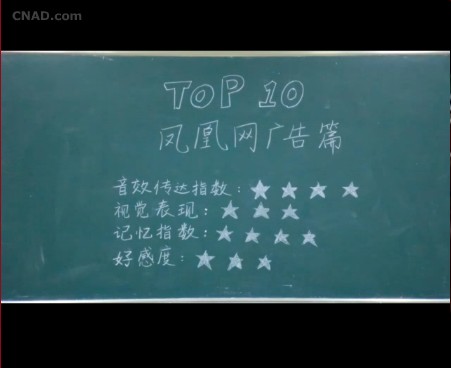 CNAD.com
TOP 10
凤凰网广告篇
音效传达指数：★★★★
视觉表现：★★★
记忆指数：★★★★
好感度：★★★